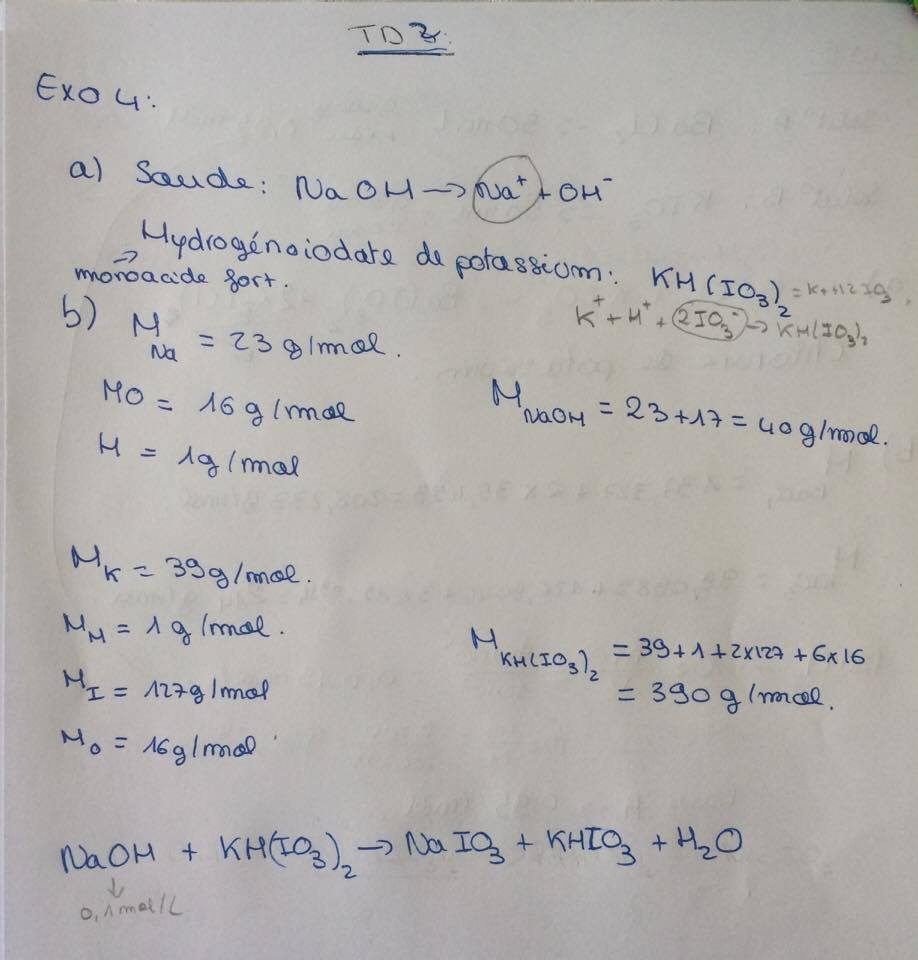 TD 3:
Exo 4:
a) Soude: NaOH → Na⁺ + OH⁻
Hydrogénoiodate de potassium: KH(IO₃)₂ = K + H 2 IO₃
→ monoacide fort.
K⁺ + H⁺ + 2IO₃⁻ → KH(IO₃)₂
b) M Na = 23 g/mol.
MO = 16 g/mol
M NaOH = 23 + 17 = 40 g/mol.
H = 1g/mol
M K = 39 g/mol.
M H = 1 g/mol.
M KH(IO₃)₂ = 39 + 1 + 2x127 + 6x16
M I = 127g/mol
= 390 g/mol.
M O = 16g/mol
NaOH + KH(IO₃)₂ → NaIO₃ + KHIO₃ + H₂O
↓
0,1 mol/L